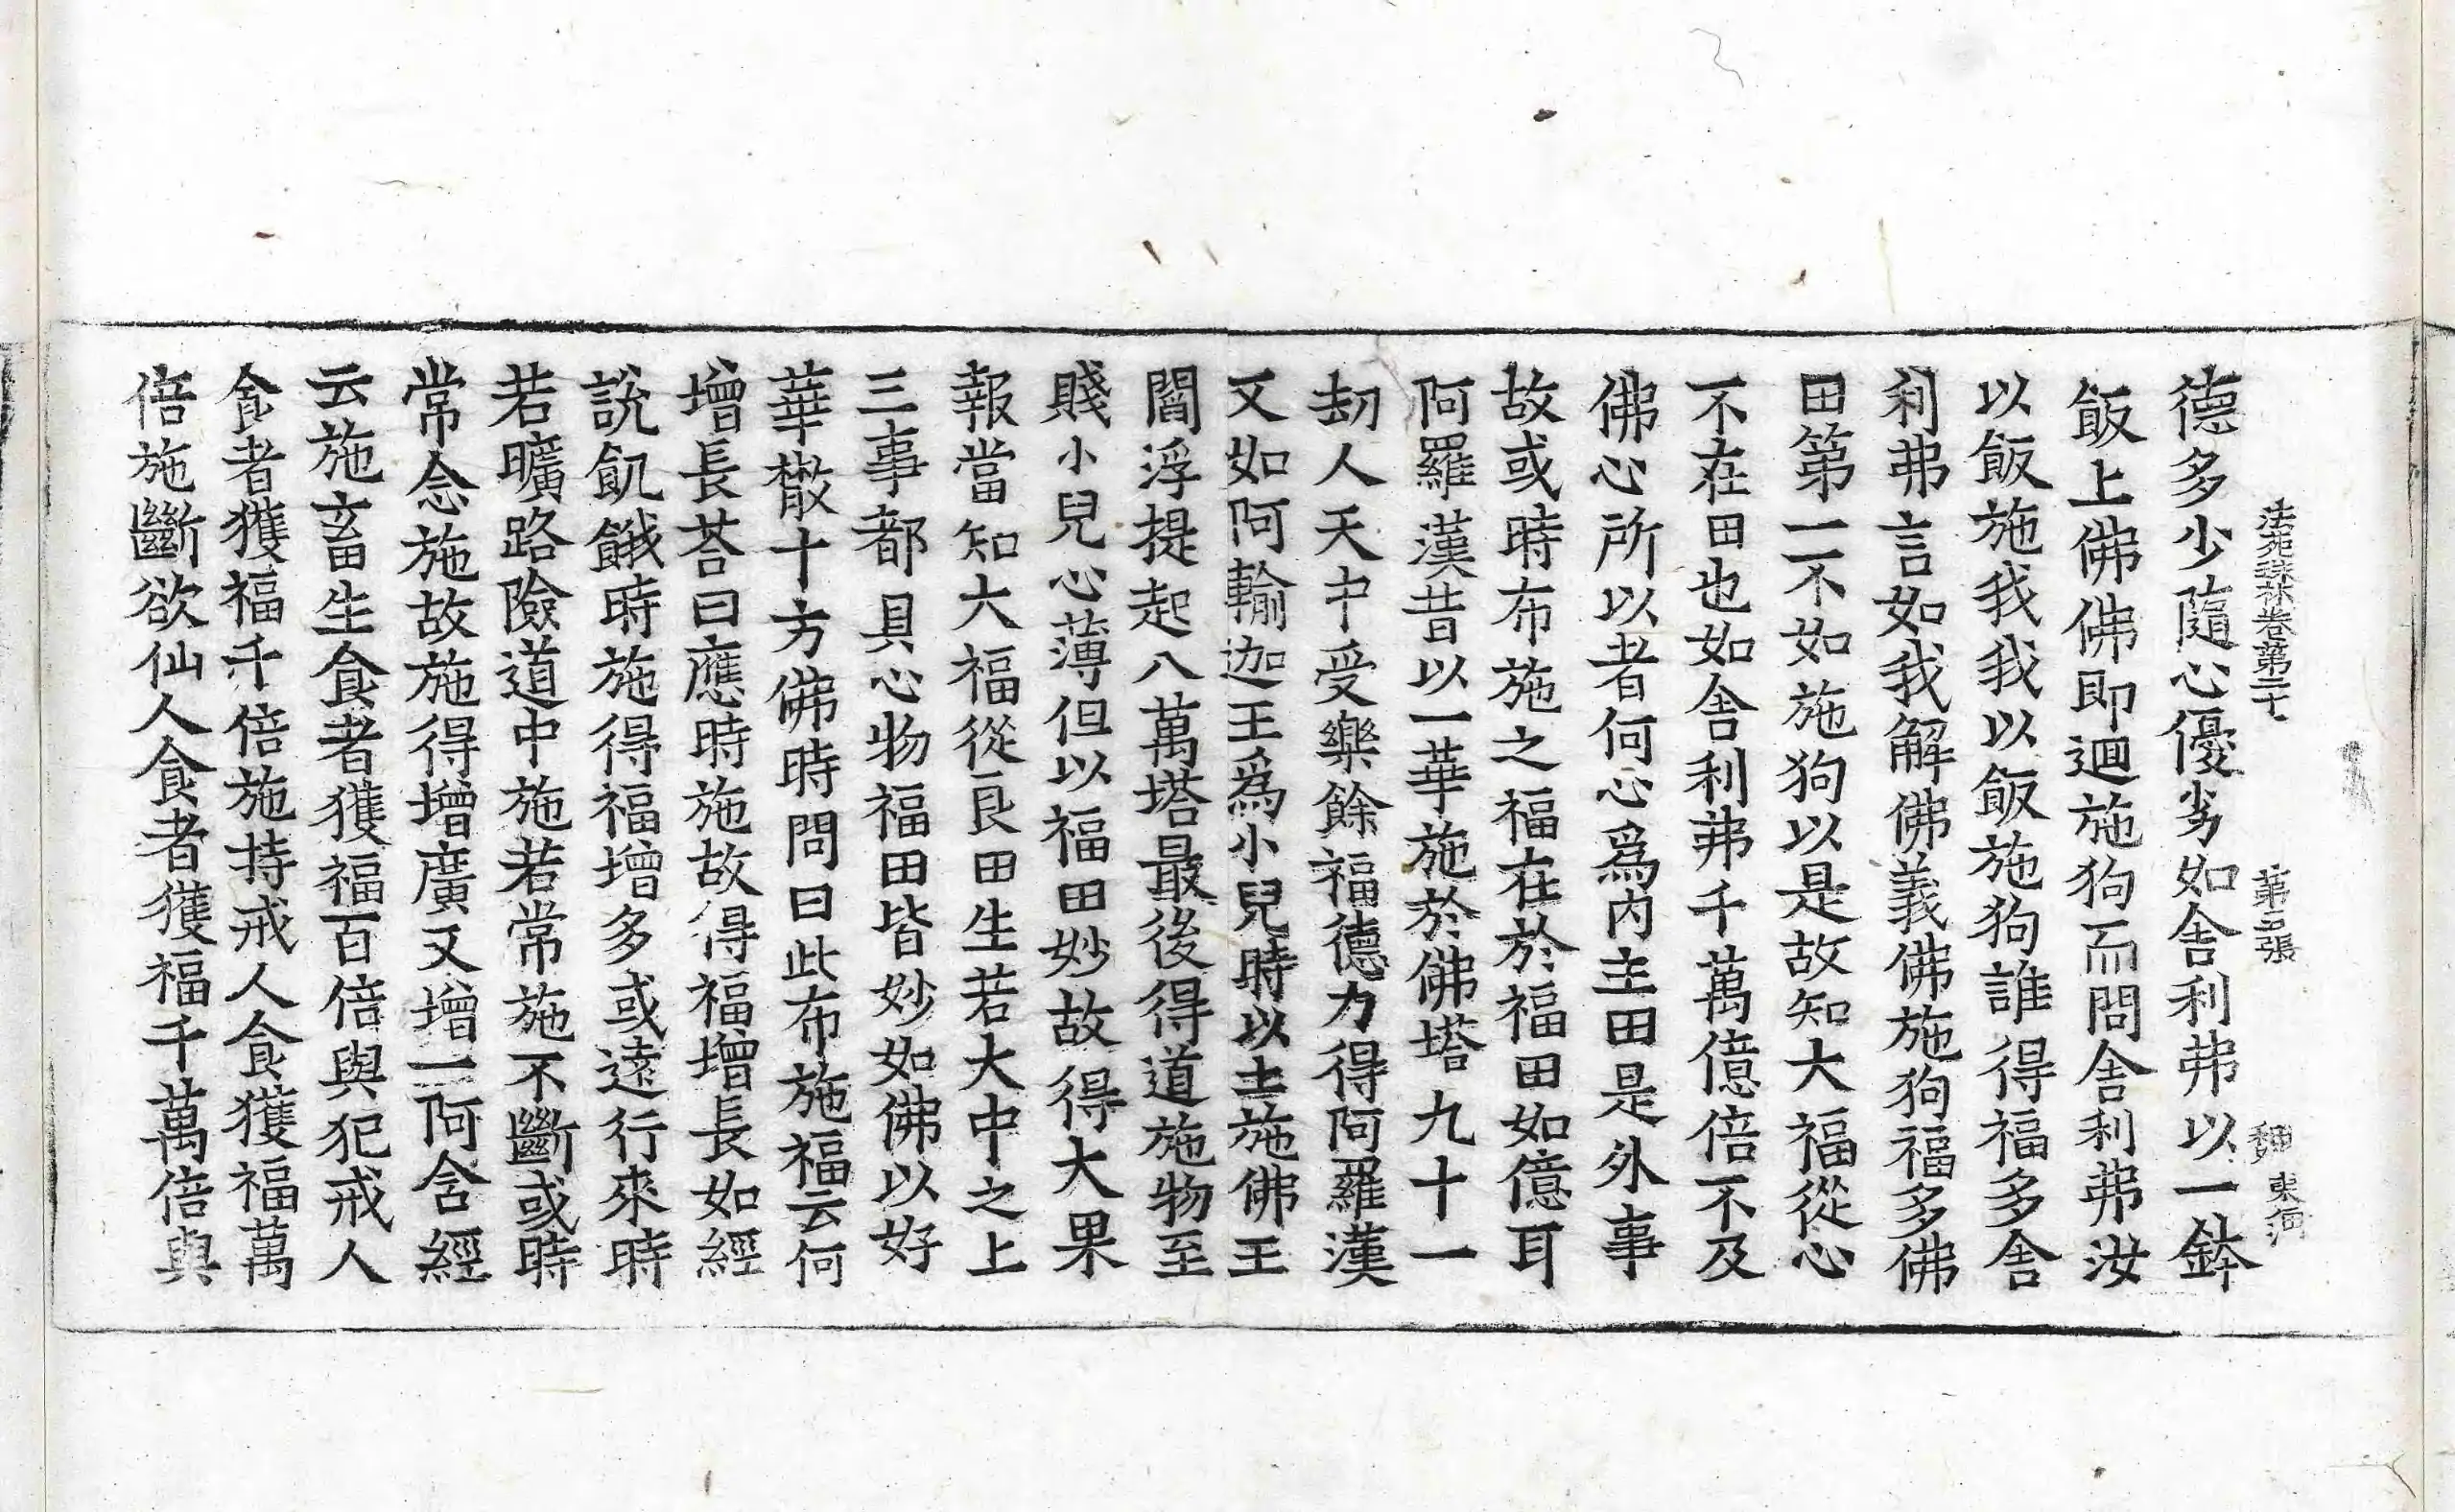 法苑珠林卷第二十 第五張 東河
德多少隨心優劣如舍利弗以一鉢
飯上佛佛即迴施狗而問舍利弗汝
以飯施我我以飯施狗誰得福多舍
利弗言如我解佛義佛施狗福多佛
田第一不如施狗以是故知大福從心
不在田也如舍利弗千萬億倍不及
佛心所以者何心爲内主田是外事
故或時布施之福在於福田如億耳
阿羅漢昔以一華施於佛塔九十一
劫人天中受樂餘福德力得阿羅漢
又如阿輸迦王爲小兒時以土施佛王
閻浮提起八萬塔最後得道施物至
賤小兒心薄但以福田妙故得大果
報當知大福從良田生若大中之上
三事都具心物福田皆妙如佛以好
華散十方佛時問曰此布施福云何
增長荅曰應時施故得福增長如經
說飢餓時施得福增多或遠行來時
若曠路險道中施若常施不斷或時
常念施故施得增廣又增一阿含經
云施畜生食者獲福百倍與犯戒人
食者獲福千倍施持戒人食獲福萬
倍施斷欲仙人食者獲福千萬倍與